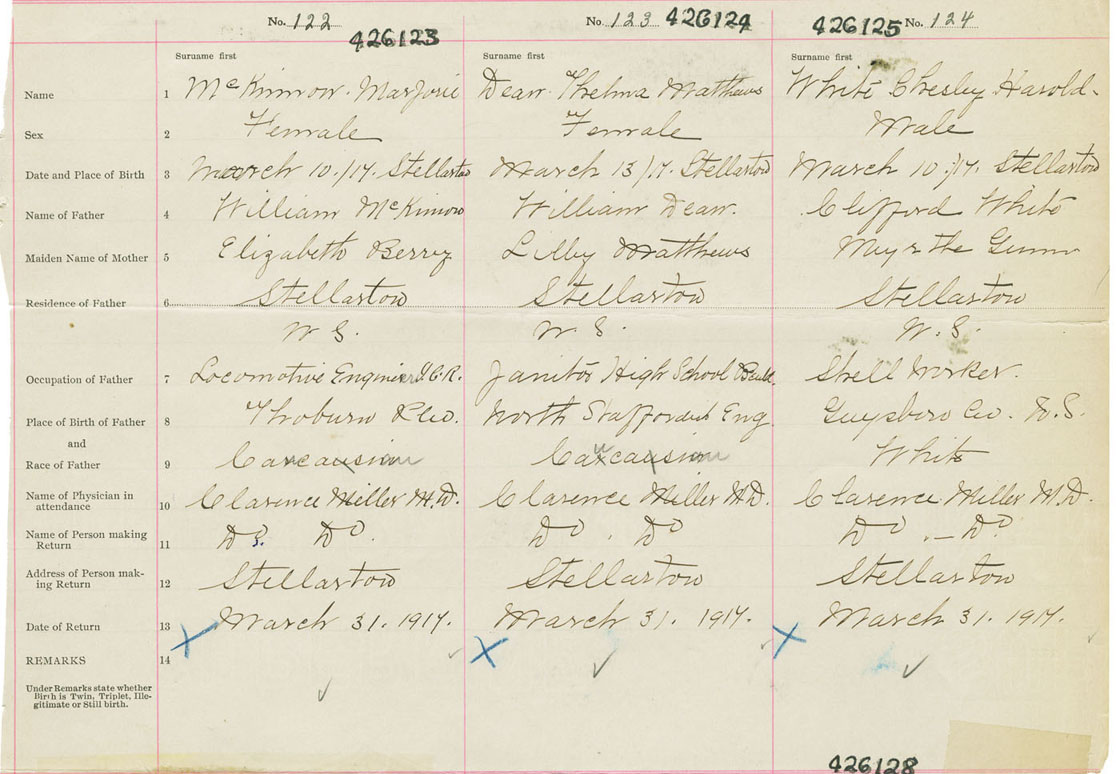 No. 122 No. 123 426124 426125 No. 124
426123
Surname first Surname first Surname first
Name 1 McKinnon Marjorie Dean Thelma Matthews White Chesley Harold
Sex 2 Female Female Male
Date and Place of Birth 3 March 10/17. Stellarton March 13/17. Stellarton March 10/17. Stellarton
Name of Father 4 William McKinnon William Dean. Clifford White
Maiden Name of Mother 5 Elizabeth Berry Lilly Matthews Gunn
Residence of Father 6 Stellarton Stellarton Stellarton
N S. N S. N. S.
Occupation of Father 7 Locomotive Engineer I.C.R. Janitor High School Steel Worker.
Place of Birth of Father 8 Thorburn North Eng. Guysboro Co. N.S.
and
Race of Father 9 White
Name of Physician in
attendance 10 Clarence Miller M.D. Clarence Miller M.D. Clarence Miller M.D.
Name of Person making
Return 11 Do. Do. Do. Do Do. – Do.
Address of Person mak-
ing Return 12 Stellarton Stellarton Stellarton
Date of Return 13 March 31. 1917. March 31. 1917. March 31. 1917.
REMARKS 14
Under Remarks state whether
Birth is Twin, Triplet, Ille-
gitimate or Still birth.
426128